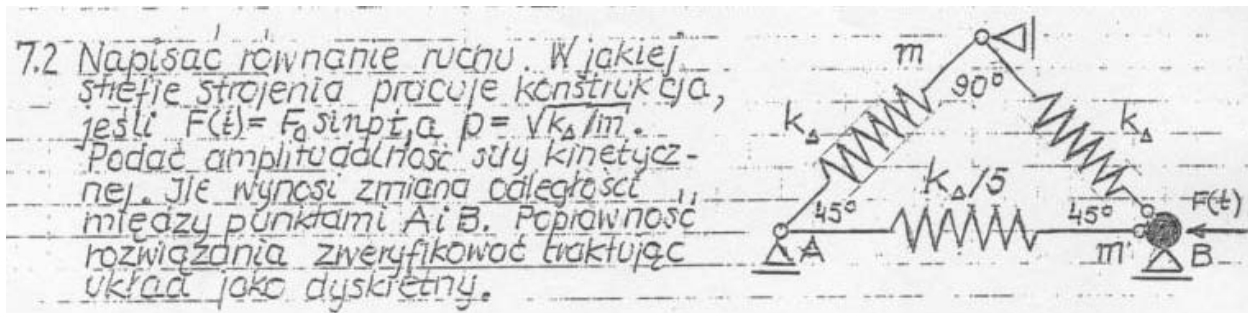 7.2 Napisać równanie ruchu. W jakiej
strefie strojenia pracuje konstrukcja,
jeśli F(t) = F₀ sinpt, a p = √k_Δ/m.
Podać amplitudalność siły kinetycz-
nej. Ile wynosi zmiana odległości
między punktami A i B. Poprawność
rozwiązania zweryfikować traktując
układ jako dyskretny.
m
90°
k_Δ
k_Δ
k_Δ/5
45°
45°
F(t)
A
m
B